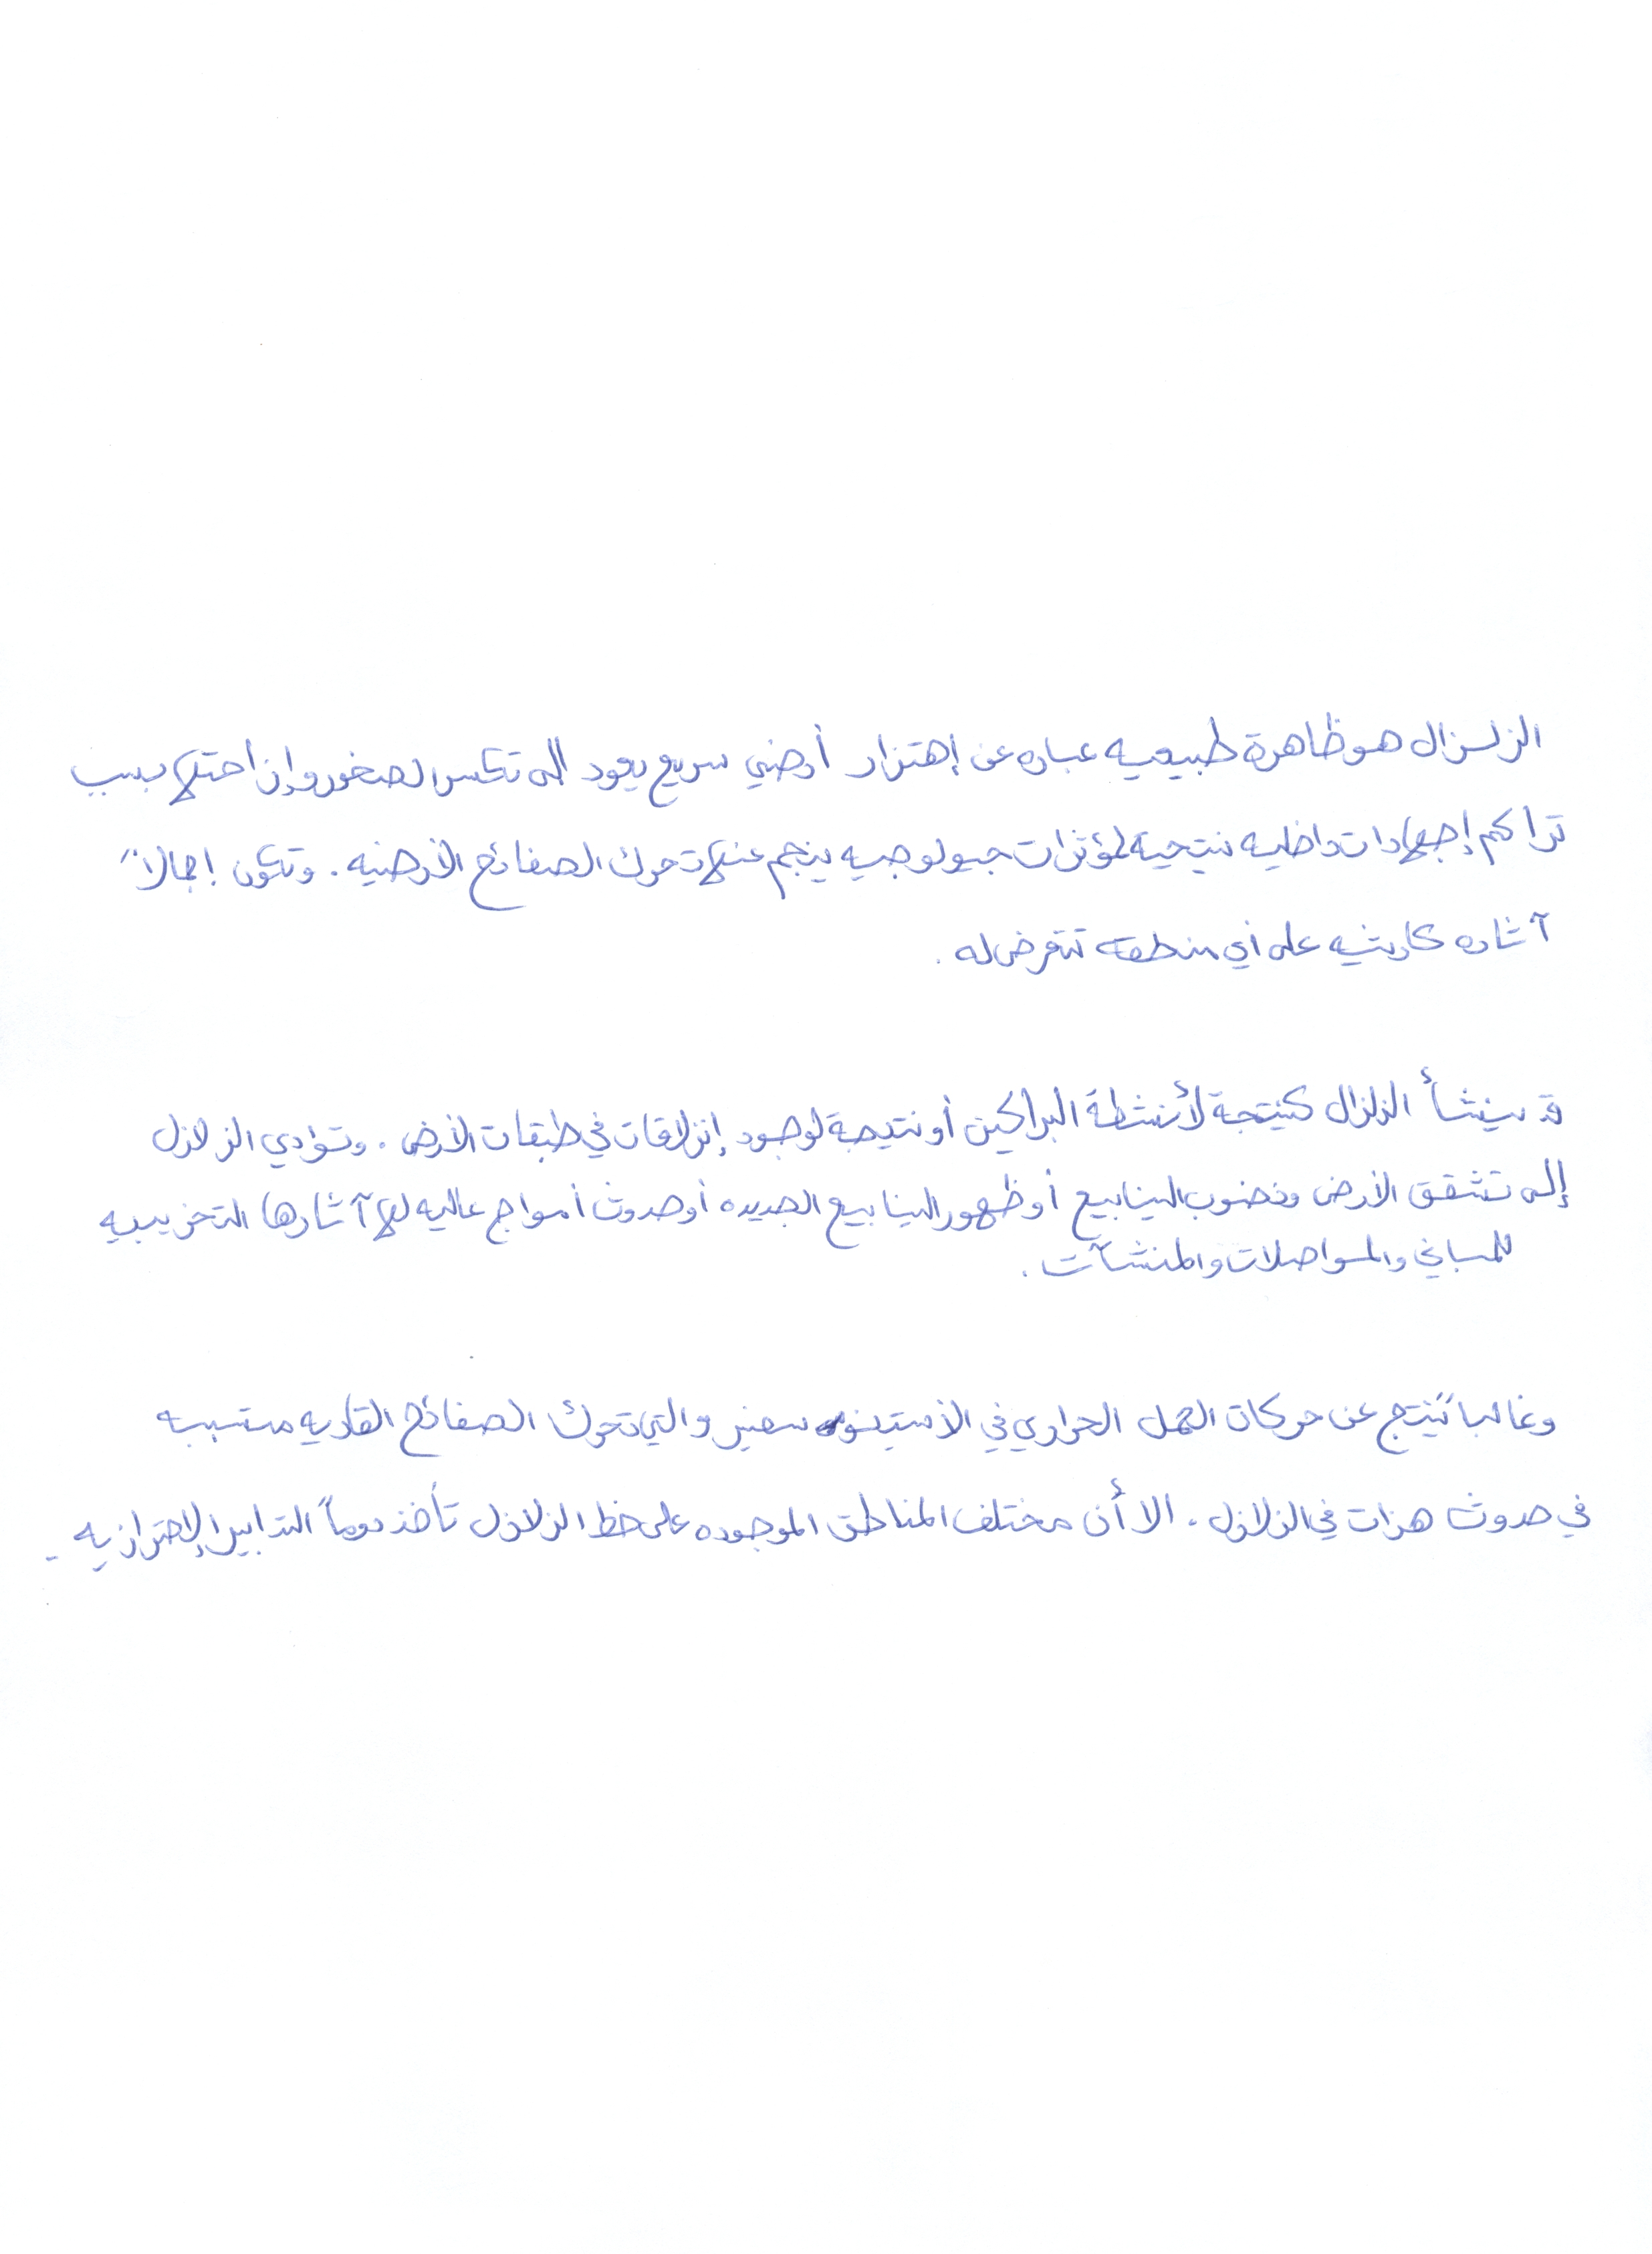 الزلزال هو ظاهرة طبيعيه عباره عن إهتزاز أرضي سريع يعود إلى تكسر الصخور وإزاحتها بسبب
تراكم إجهادات داخليه نتيجية لمؤثرات جيولوجيه ينجم عنها تحرك الصفائح الأرضيه . وتكون اجمالاً
آثاره كارثيه على أي منطقه تتعرض له .
قد ينشأ الزلزال كنيتجة لأنشطة البراكين أو نتيجة لوجود إنزلاقات في طبقات الأرض . وتؤدي الزلازل
إلى تشقق الأرض ونضوب الينابيع أو ظهور الينابيع الجديده أو حدوث أمواج عاليه لها آثارها التخريبيه
للمباني والمواصلات والمنشآت .
وغالباً ينتج عن حركات الحمل الحراري في الأستينوسفير والتي تحرك الصفائح القاريه متسببه
في حدوث هزات في الزلازل . الا أن مختلف المناطق الموجوده على خط الزلازل تأخذ دوماً التدابير الإحترازيه .